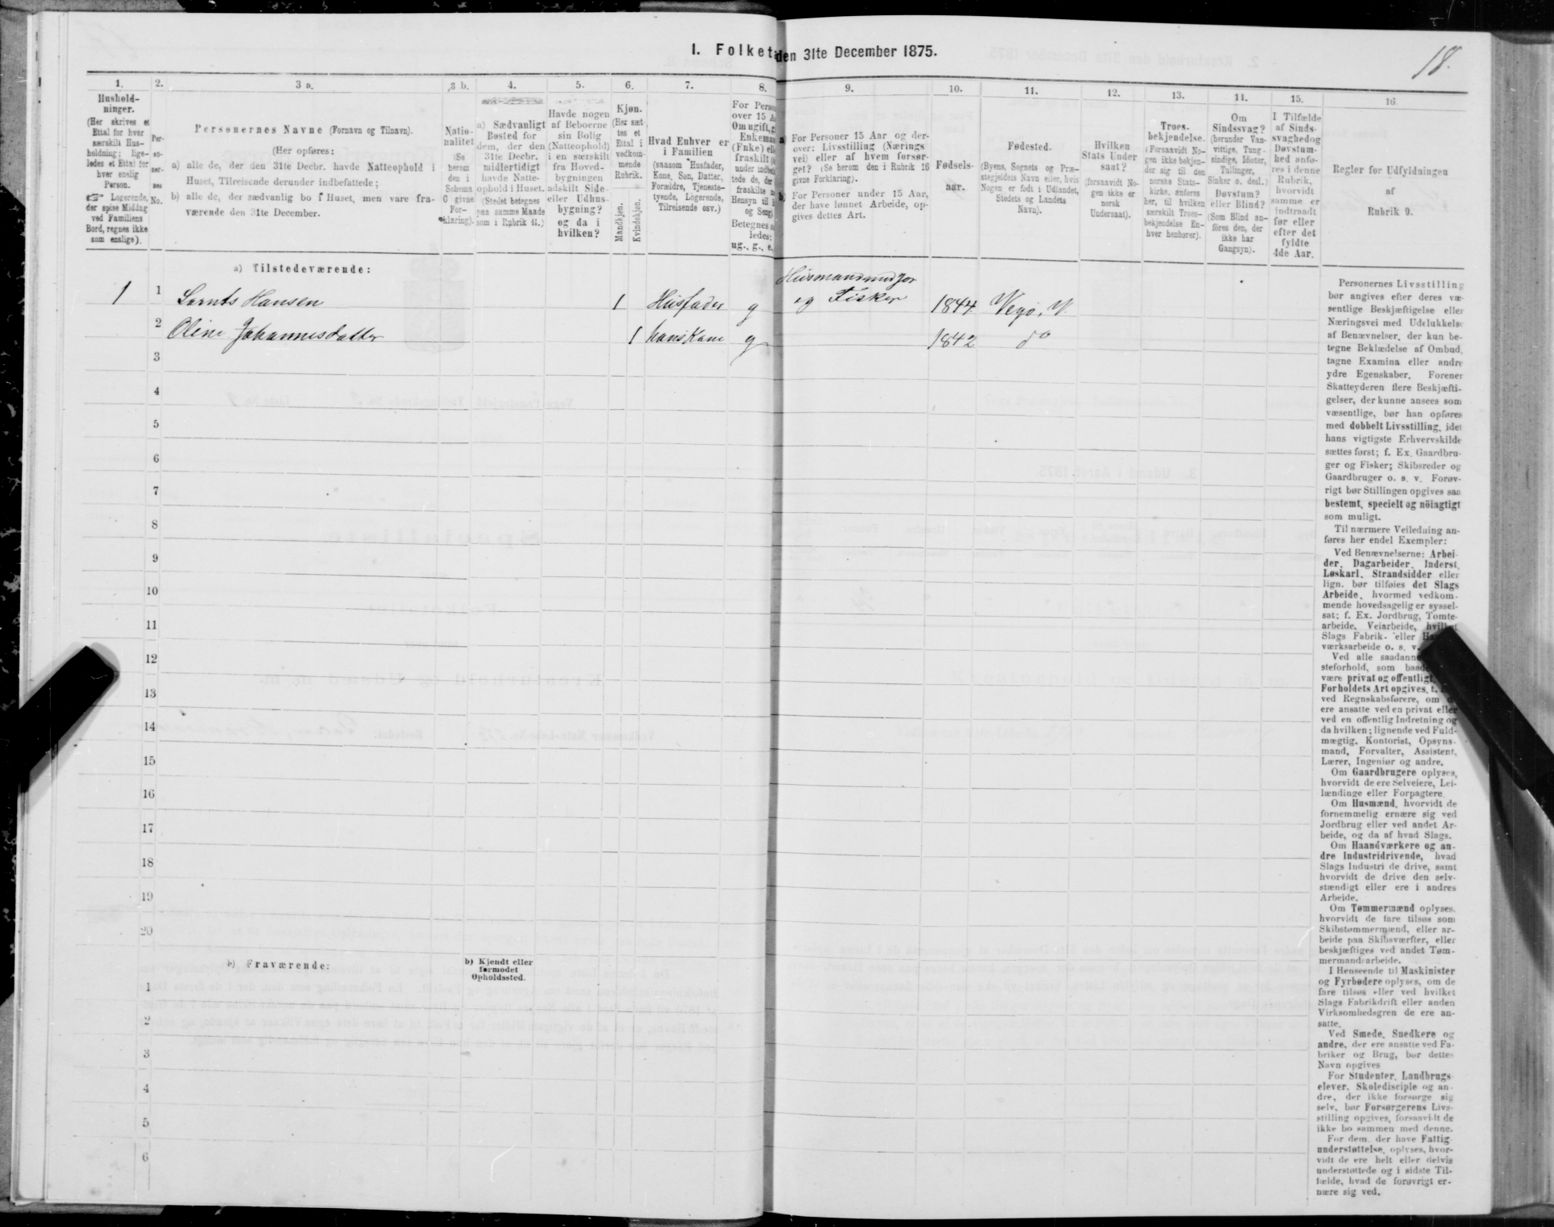 I. Folket
den 31te December 1875.
18.
1.
2.
3 a.
3 b.
4.
5.
6.
7.
8.
9.
10.
11.
12.
13.
14.
15.
16
Hushold-
ninger.
(Her skrives et
Ettal for hver
særskilt Hus-
holdning; lige-
ledes et Ettal for
hver enslig
Person.
Logerende,
der spise Middag
ved Familiens
Bord, regnes ikke
som enslige).
Per-
so-
ner-
nes
No.
Personernes Navne (Fornavn og Tilnavn).
(Her opføres:
a) alle de, der den 31te Decbr. havde Natteophold i
Huset, Tilreisende derunder indbefattede;
b) alle de, der sædvanlig bo i Huset, men vare fra-
værende den 31te December.
Natio-
nalitet
(Se
herom
den i
Schema
0 givne
For-
klaring).
a) Sædvanligt
Bosted for
dem, der den
31te Decbr.
midlertidigt
havde Natte-
ophold i Huset.
(Stedet betegnes
paa samme Maade
som i Rubrik 11.)
Havde nogen
af Beboerne
sin Bolig
(Natteophold)
i en særskilt
fra Hoved-
bygningen
adskilt Side-
eller Udhus-
bygning?
og da i
hvilken?
Kjøn.
(Her sæt
tes et
Ettal i
vedkom-
mende
Rubrik.
Mandkjøn.
Kvindekjøn.
Hvad Enhver er
i Familien
(saasom Husfader,
Kone, Søn, Datter,
Forældre, Tjeneste-
tyende, Logerende,
Tilreisende osv.)
For Perso
over 15 A
Om ugift, g
Enkeman
(Enke) ell
fraskilt
under indbefa
tede de, der
fraskilte
Hensyn til
og Seng)
Betegnes
ledes:
ug., g., e.
For Personer 15 Aar og der-
over: Livsstilling (Nærings-
vei) eller af hvem forsør-
get? (Se herom den i Rubrik 16
givne Forklaring).
For Personer under 15 Aar,
der have lønnet Arbeide, op-
gives dettes Art.
Fødsels-
aar.
Fødested.
(Byens, Sognets og Præ-
stegjeldets Navn eller, hvis
Nogen er født i Udlandet,
Stedets og Landets
Navn).
Hvilken
Stats Under
saat?
(forsaavidt No-
gen ikke er
norsk
Undersaat).
Troes-
bekjendelse.
(Forsaavidt No-
gen ikke bekjen-
der sig til den
norske Stats-
kirke, anføres
her, til hvilken
særskilt Troes-
bekjendelse En-
hver henhører).
Om
Sindssvag?
(herunder Van-
vittige, Tung-
sindige, Idioter,
Tullinger,
Sinker o. desl.)
Døvstum?
eller Blind?
(Som Blind an-
føres den, der
ikke har
Gangsyn).
I Tilfælde
af Sinds-
svaghedog
Døvstum-
hed anfø-
res i denne
Rubrik,
hvorvidt
samme er
indtraadt
før eller
efter det
fyldte
4de Aar.
Regler for Udfyldningen
af
Rubrik 9.
a) Tilstedeværende:
Husmandmedjor
1 1 Lornts Hansen 1 Husfader g og Fisker 1844 Vegø, N.
2 Oline Johannesdatter 1 hans Kone g 1842 do
3
4
5
6
7
8
9
10
11
12
13
14
15
16
17
18
19
20
b) Fraværende:
b) Kjendt eller
formodet
Opholdssted.
1
2
3
4
5
6
Personernes Livsstilling
bør angives efter deres væ-
sentlige Beskjæftigelse eller
Næringsvei med Udelukkelse
af Benævnelser, der kun be-
tegne Beklædelse af Ombud,
tagne Examina eller andre
ydre Egenskaber. Forener
Skatteyderen flere Beskjæfti-
gelser, der kunne ansees som
væsentlige, bør han opføres
med dobbelt Livsstilling, idet
hans vigtigste Erhvervskilde
sættes først; f. Ex. Gaardbru-
ger og Fisker; Skibsreder og
Gaardbruger o. s. v. Forøv-
rigt bør Stillingen opgives saa
bestemt, specielt og nöiagtigt
som muligt.
Til nærmere Veiledning an-
føres her endel Exempler:
Ved Benævnelserne: Arbei-
der, Dagarbeider, Inderst,
Løskarl, Strandsidder eller
lign. bør tilføies det Slags
Arbeide, hvormed vedkom-
mende hovedsagelig er syssel-
sat; f. Ex. Jordbrug, Tomte-
arbeide, Veiarbeide, hvilket
Slags Fabrik- eller
værksarbeide o. s. v.
Ved alle saadann
steforhold, som baade
være privat og offentligt,
Forholdets Art opgives, t.
ved Regnskabsførere, om
ere ansatte ved en privat eller
ved en offentlig Indretning og
da hvilken; lignende ved Fuld-
mægtig, Kontorist, Opsyns-
mand, Forvalter, Assistent,
Lærer, Ingeniør og andre.
Om Gaardbrugere oplyses,
hvorvidt de ere Selveiere, Lei-
lændinge eller Forpagtere.
Om Husmænd, hvorvidt de
fornemmelig ernære sig ved
Jordbrug eller ved andet Ar-
beide, og da af hvad Slags.
Om Haandværkere og an-
dre Industridrivende, hvad
Slags Industri de drive, samt
hvorvidt de drive den selv-
stændigt eller ere i andres
Arbeide.
Om Tømmermænd oplyses,
hvorvidt de fare tilsøs som
Skibstømmermænd, eller ar-
beide paa Skibsværfter, eller
beskjæftiges ved andet Tøm-
mermandsarbeide.
I Henseende til Maskinister
og Fyrbødere oplyses, om de
fare tilsøs eller ved hvilket
Slags Fabrikdrift eller anden
Virksomhedsgren de ere an-
satte.
Ved Smede, Snedkere og
andre, der ere ansatte ved Fa-
briker og Brug, bør dettes
Navn opgives
For Studenter, Landbrugs-
elever, Skoledisciple og an-
dre, der ikke forsørge sig
selv, bør Forsørgerens Livs-
stilling opgives, forsaavidt de
ikke bo sammen med denne.
For dem, der have Fattig-
understøttelse, oplyses, hvor-
vidt de ere helt eller delvis
understøttede og i sidste Til-
fælde, hvad de forøvrigt er-
nære sig ved.